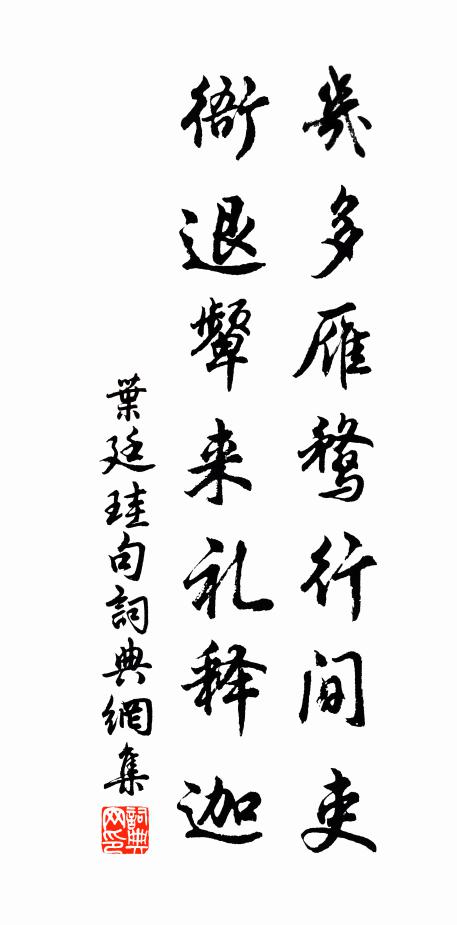 幾多雁鶩行間吏
衙退顰来礼释迦
葉廷珪句詞典網集
詞典网印